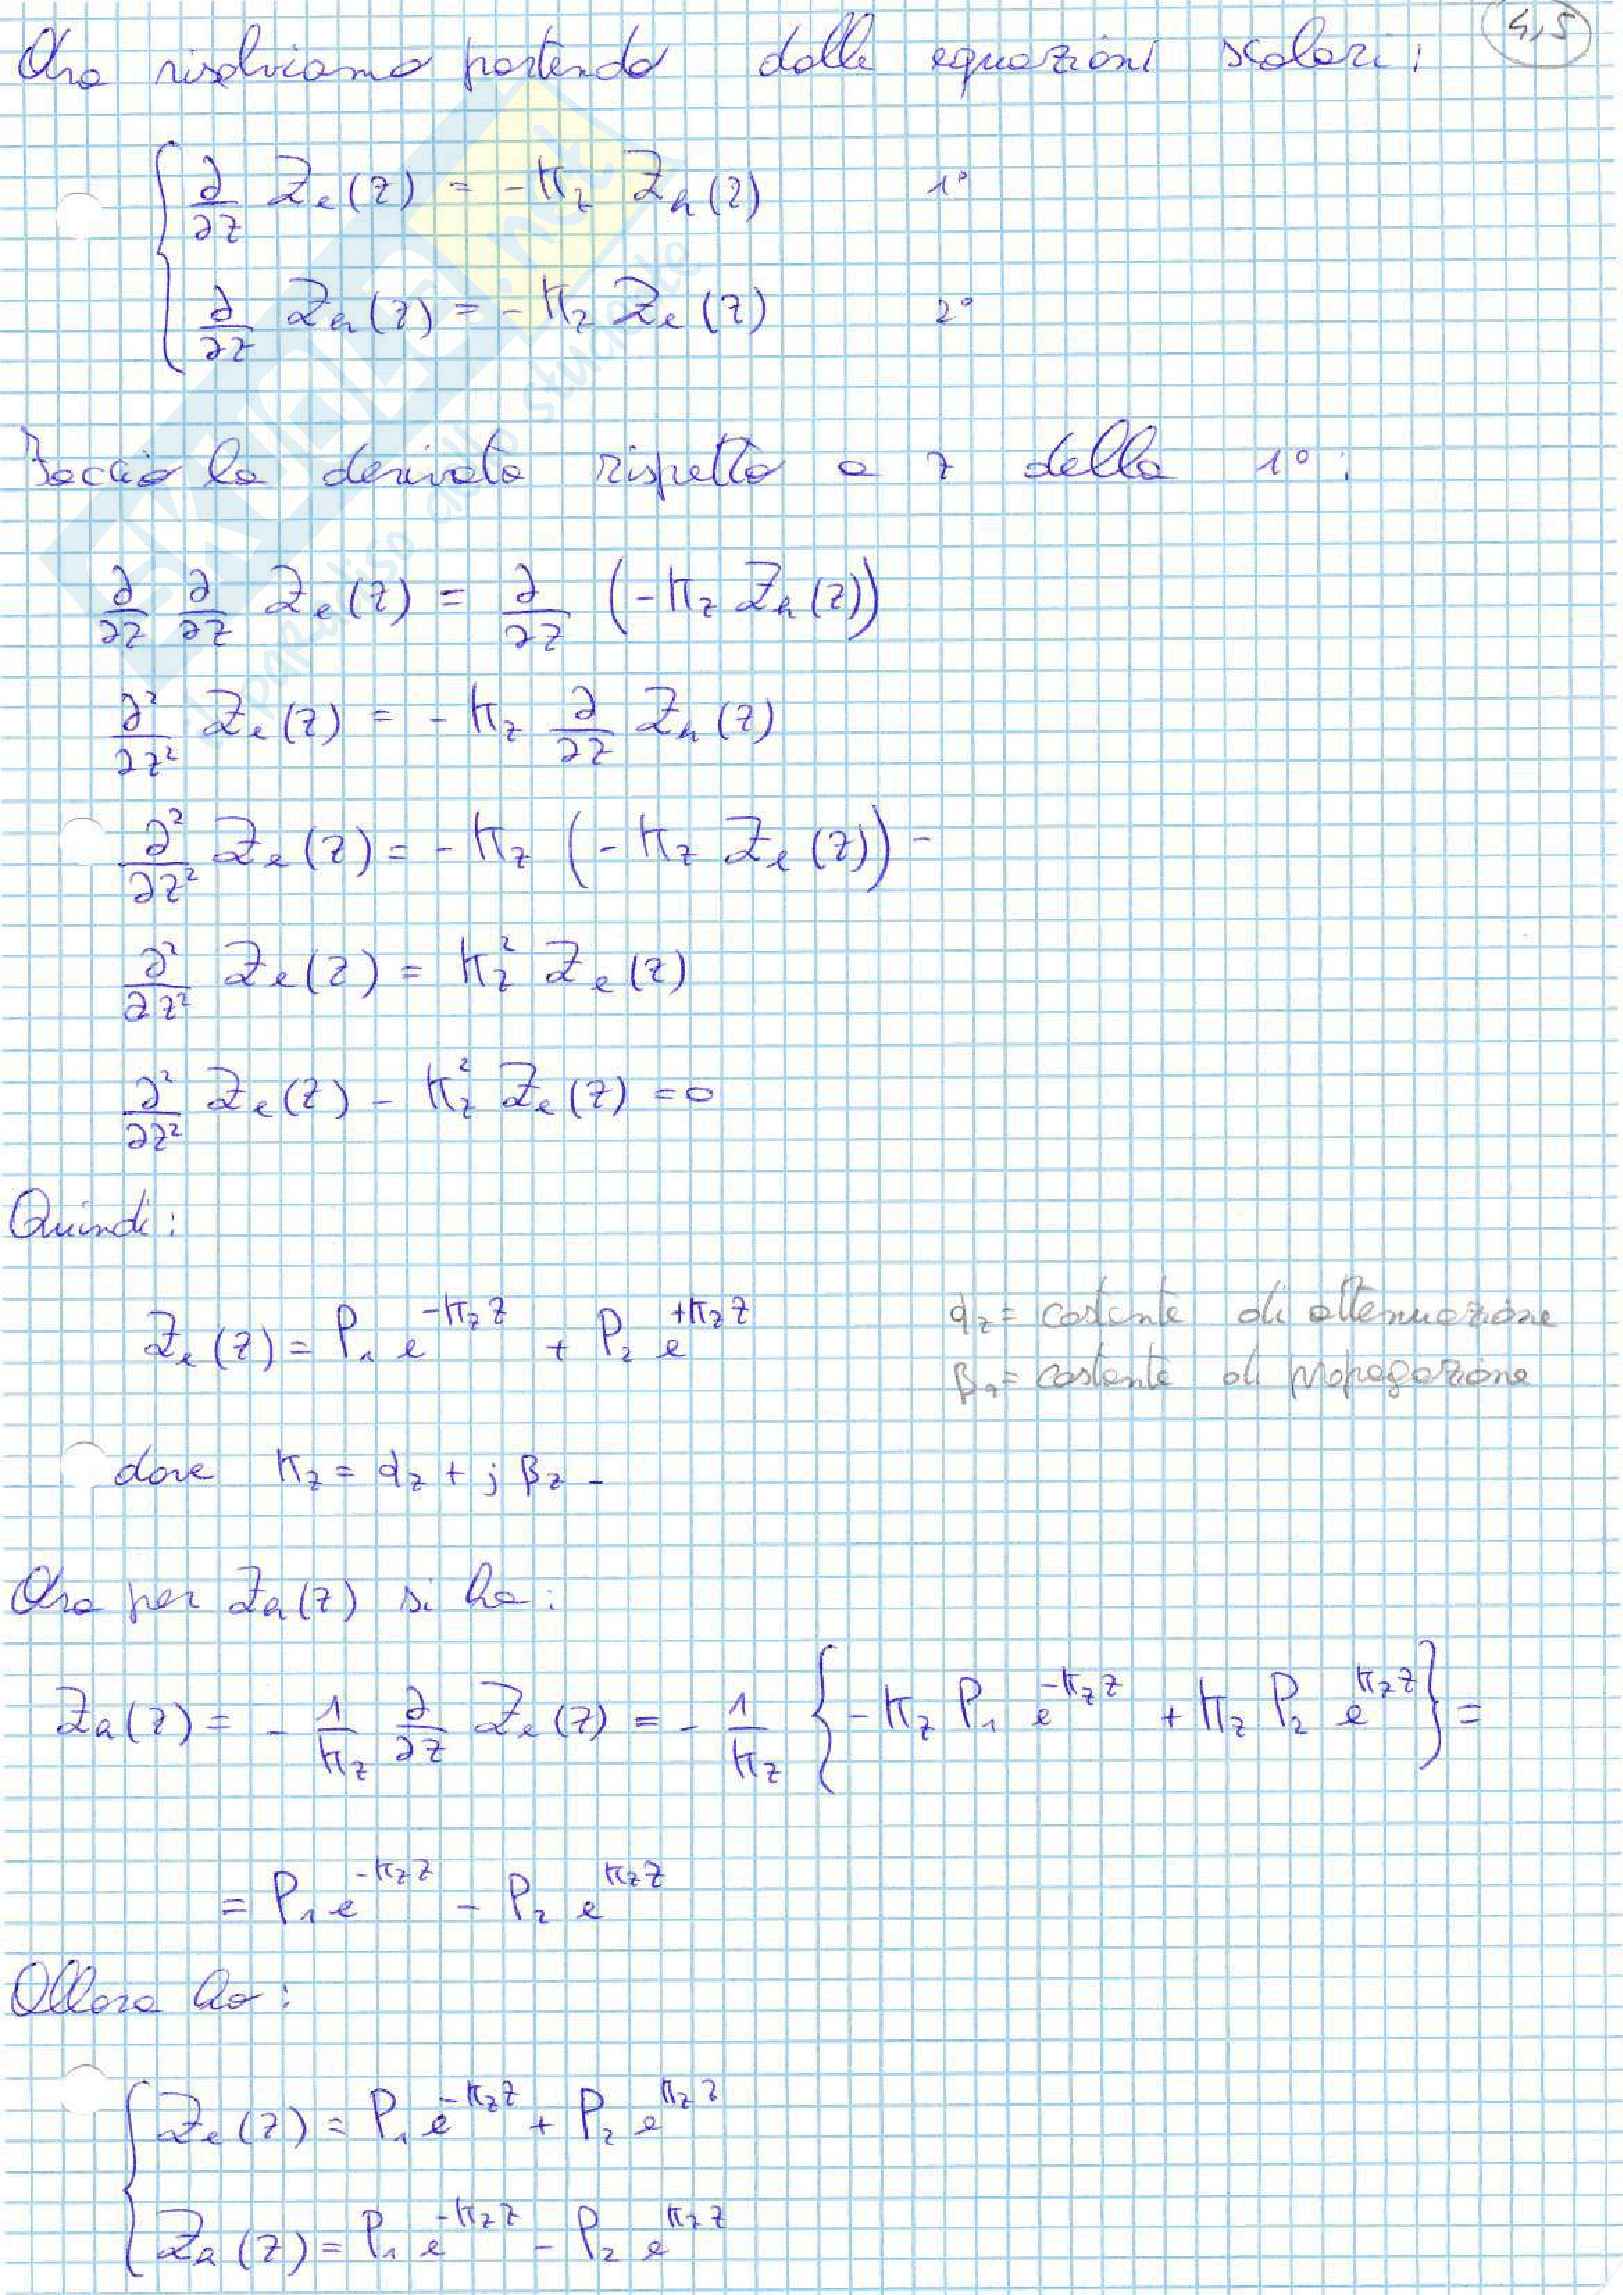 4,5
Ora risolviamo partendo dalle equazioni scalari:
∂/∂z Ze(z) = -Kz Zh(z) 1°
∂/∂z Zh(z) = -Kz Ze(z) 2°
Faccio la derivata rispetto a z della 1°:
∂/∂z ∂/∂z Ze(z) = ∂/∂z (-Kz Zh(z))
∂²/∂z² Ze(z) = -Kz ∂/∂z Zh(z)
∂²/∂z² Ze(z) = -Kz (-Kz Ze(z)) -
∂²/∂z² Ze(z) = Kz² Ze(z)
∂²/∂z² Ze(z) - Kz² Ze(z) = 0
Quindi:
Ze(z) = P₁ e^(-Kz z) + P₂ e^(+Kz z)
αz = costante di attenuazione
βz = costante di propagazione
dove Kz = αz + j βz -
Ora per Zh(z) si ha:
Zh(z) = - 1/Kz ∂/∂z Ze(z) = - 1/Kz {-Kz P₁ e^(-Kz z) + Kz P₂ e^(Kz z)} =
= P₁ e^(-Kz z) - P₂ e^(Kz z)
Allora ho:
Ze(z) = P₁ e^(-Kz z) + P₂ e^(Kz z)
Zh(z) = P₁ e^(-Kz z) - P₂ e^(Kz z)
SKUOLA.net
il paradiso dello studente